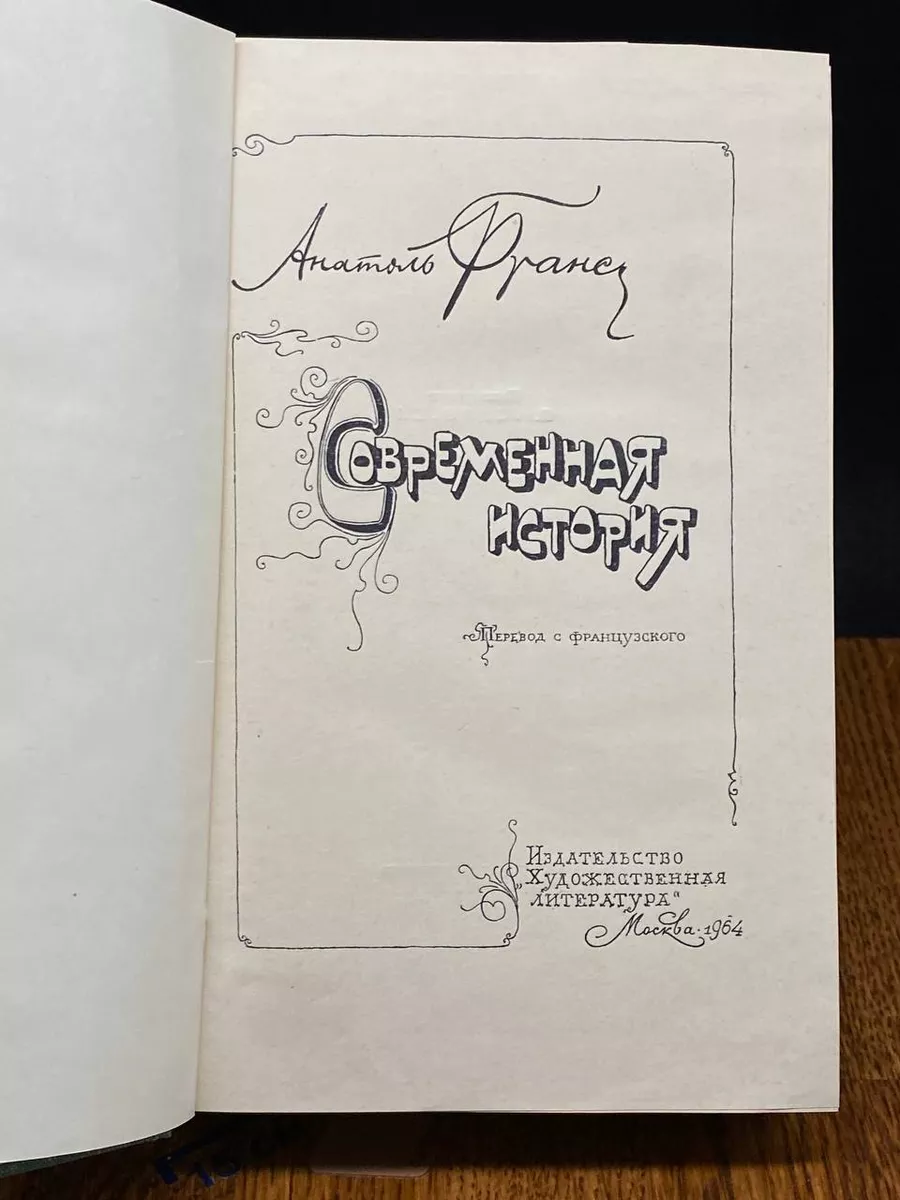 Анатоль Франс
Современная
история
Перевод с французского
Издательство
„Художественная
литература“
Москва·1964